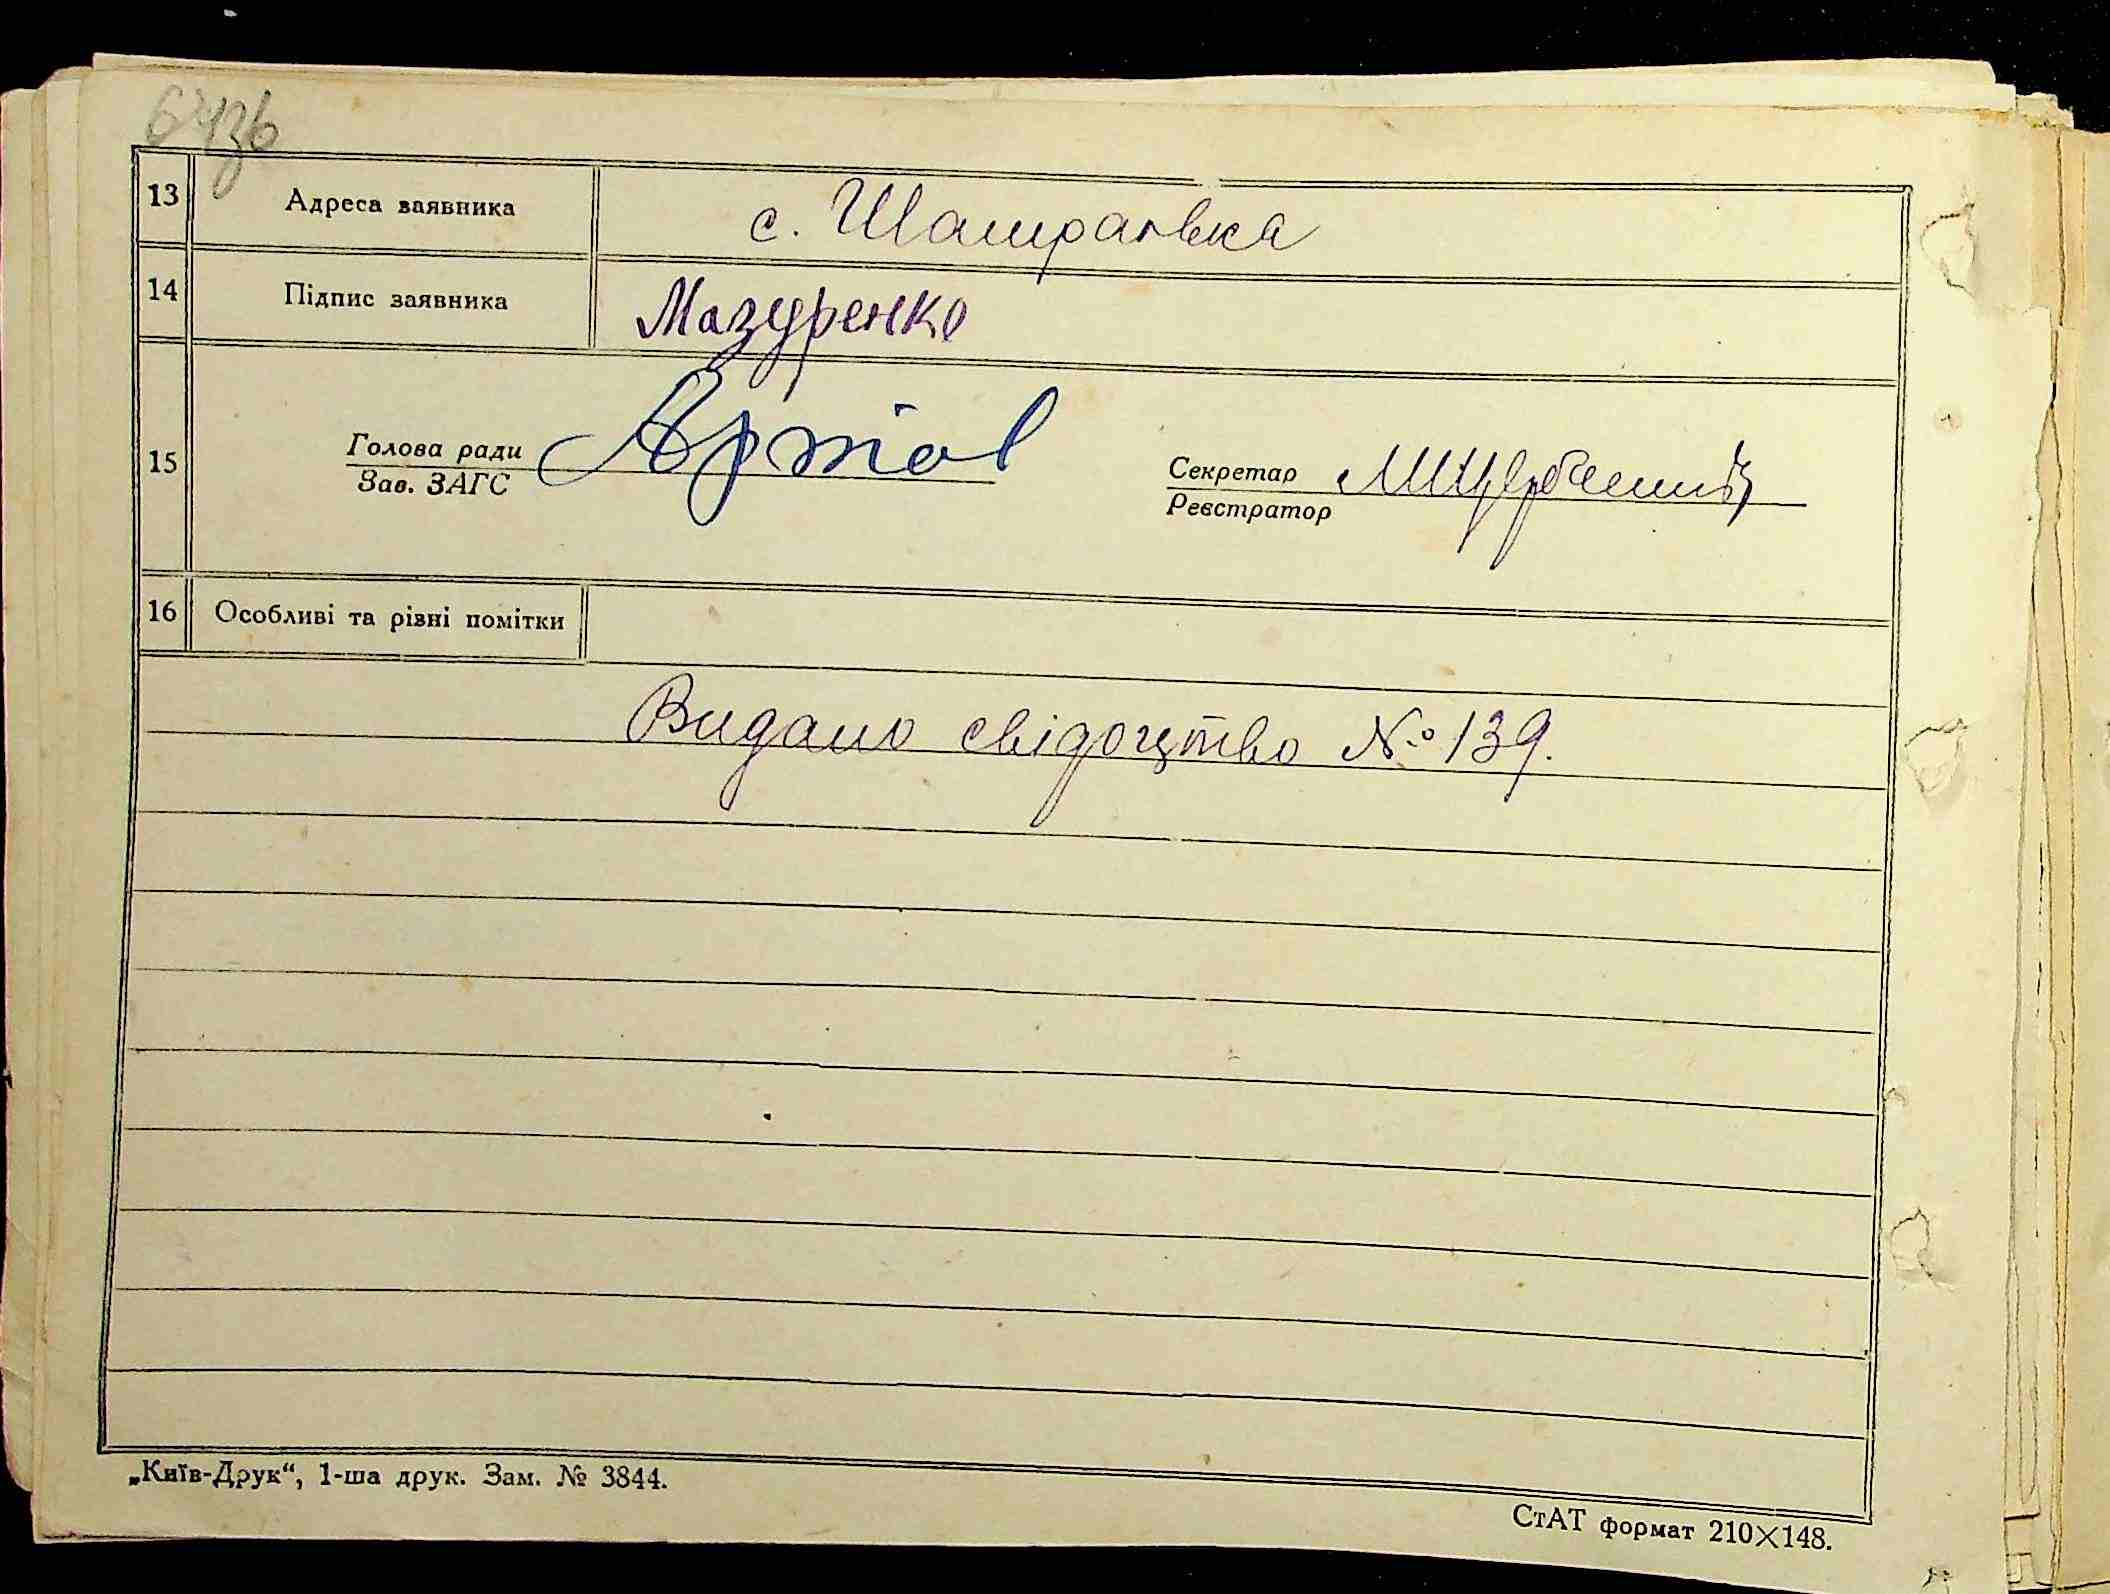 13 Адреса заявника с. Шамраївка
14 Підпис заявника Мазуренко
15 Голова ради Секретар
Зав. ЗАГС Реєстратор
16 Особливі та різні помітки
Видано свідоцтво № 139.
„Київ-Друк“, 1-ша друк. Зам. № 3844.
СтАТ формат 210×148.